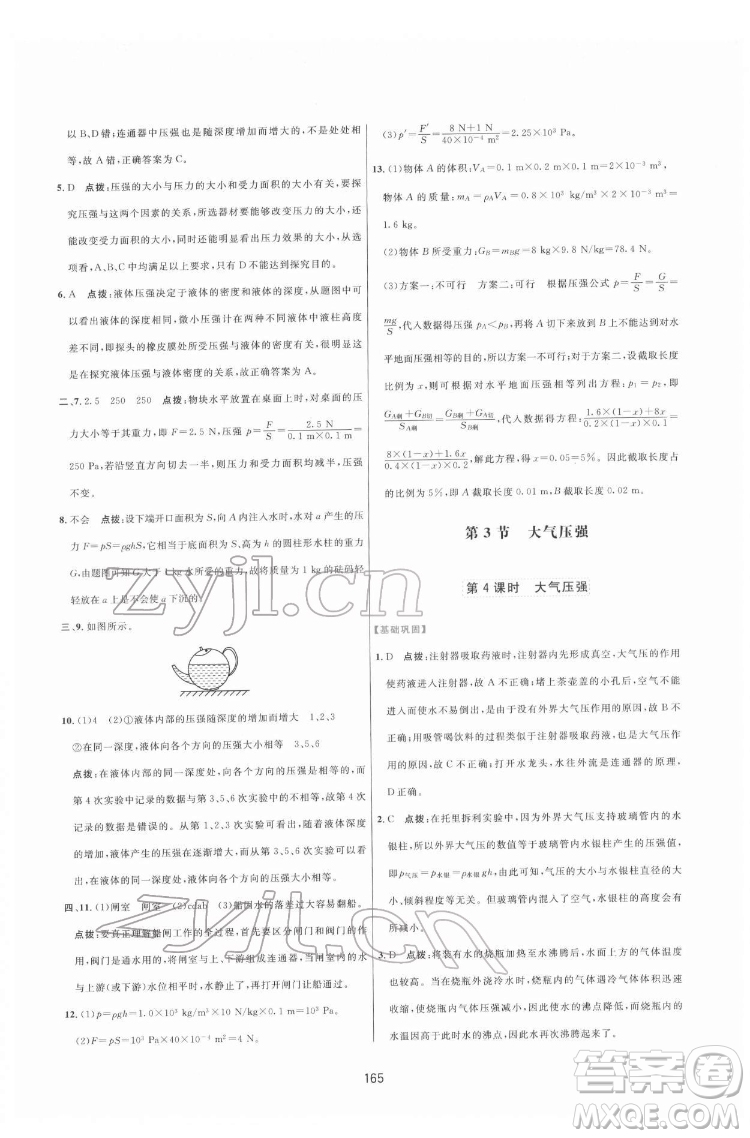 以 B、D 错;连通器中压强也是随深度增加而增大的,不是处处相
等,故 A 错,正确答案为 C。
5. D 点拨:压强的大小与压力的大小和受力面积的大小有关,要探
究压强与这两个因素的关系,所选器材要能够改变压力的大小,还
能改变受力面积的大小,且能够看出压力效果的大小。从选
项看,A、B、C 中所选器材可以满足以上要求。只有 D 不能达到探究目的。
6. A 点拨:液体压强决定于液体的密度和液体的深度,从题图中可
以看出液体的深度相同,微小压强计在两种不同液体中液柱高度
差不同,即探头的橡皮膜处所受压强与液体的密度有关,因此目的
是在探究液体压强与液体密度的关系。故正确答案为 A。
二、7. 2.5 250 250 点拨:物块水平放置在桌面上时,对桌面的压
力大小等于其重力,即 F=2.5 N,压强 p=F/S=2.5 N/(0.1 m×0.1 m)=
250 Pa,若沿竖直方向切去一半,则压力和受力面积均减半,压强
不变。
8. 不会 点拨:设下端开口面积为 S,向 A 内注入水时,水对 a 产生的压
力 F=pS=ρghS,它相当于底面积为 S、高为 h 的圆柱形水柱的重力
G,由题图可知 G 大于 1 kg 水所受的重力,故用质量为 1 kg 的砝码轻
轻放在 a 上是不会使 a 下沉的。
三、9. 如图所示。
10. (1)4 (2)①液体内部的压强随深度的增加而增大 1、2、3
②在同一深度,液体向各个方向的压强大小相等 3、5、6
点拨:在液体内部的同一深度处,向各个方向的压强是相等的,而
第 4 次实验中记录的数据与第 3、5、6 次数据不相等,故第 4 次
记录的数据是错误的。从第 1、2、3 次实验可以看出,随着液体深度
的增加,液体产生的压强在逐渐增大,而 3、5、6 次实验可以看
出,在同一深度处,液体向各个方向的压强是相等的。
四、11. (1)闸室 闸室 (2)cdab (3)船闸水的落差过大容易翻船。
点拨:要真正理解船闸工作的全过程,首先要区分闸门和阀门的作
用,阀门主要是将闸室与上、下游组成连通器,当打开阀门时,闸室水
与上游(或下游)水位变化相等,水静止了,再打开闸门让船通过。
12. (1)p=ρgh=1.0×10³ kg/m³×10 N/kg×0.1 m=10³ Pa。
(2)F=pS=10³ Pa×40×10⁻⁴ m²=4 N。
(3)p′=F′/S=(8 N+1 N)/(40×10⁻⁴ m²)=2.25×10³ Pa。
13. (1)物体 A 的体积:V_A=0.1 m×0.2 m×0.1 m=0.002 m³,
物体 A 的质量:m_A=ρ_A V_A=0.8×10³ kg/m³×0.002 m³=
1.6 kg。
(2)物体 B 所受重力:G_B=m_B g=8 kg×9.8 N/kg=78.4 N。
(3)方案一:不可行 方案二:可行 根据压强公式 p=F/S=G/S=
mg/S,代入数据得压强 p_A<p_B,再将 A 切下来放到 B 上,则 B 对水
平地面压强变得更大,故方案一不可行;对于方案二,设截取长度
比例为 x,则根据对水平地面压强相等可得:p₁=p₂,即
(G_A剩+G_B切)/S_A剩=(G_B剩+G_A切)/S_B剩,代入数据得 (1.6×(1-x)+8x)/(0.2×(1-x)×0.1)=
(8×(1-x)+1.6x)/(0.4×(1-x)×0.2),解此方程,得 x=0.05=5%。故截取长度占
的比例为 5%,即 A 截取长度 0.01 m,B 截取长度 0.02 m。
第 3 节 大气压强
第 4 课时 大气压强
【基础巩固】
1. D 点拨:注射器吸取药液时,注射器内先形成真空,大气压的作用
使药液进入注射器,故 A 不符合题意。堵上茶壶盖的小孔后,空气不能
进入而使水不易倒出,也是由于没有外界大气压作用的原因,故 B 不
正确。用吸管喝饮料的过程同样是由于外界大气压大于吸管内的气
压,故 C 不符合题意。打开水龙头,水流出来是连通器的原理,
正确答案为 D。
2. C 点拨:在托里拆利实验中,因为外界大气压支持玻璃管内的水
银柱,所以外界大气压的数值等于玻璃管内水银柱产生的压强值,
即 p气压=p水银=ρ水银gh。因此气压的大小与水银柱直径的大
小、倾斜程度等无关。但玻璃管内进入了空气,水银柱的高度将会
有所减小。
3. D 点拨:将烧瓶内的水烧热加热至水沸腾后,水面上方的气体温度
是较高的。当向烧瓶外浇冷水时,烧瓶内的气体遇冷气体体积迅速
收缩,使烧瓶内气体压强减小,因此水的沸点降低,而烧瓶内的
水温因高于此时水的沸点,故水再次沸腾起来了。
165
zyjl.cn
zyjl.cn
答案圈
MXQE.COM